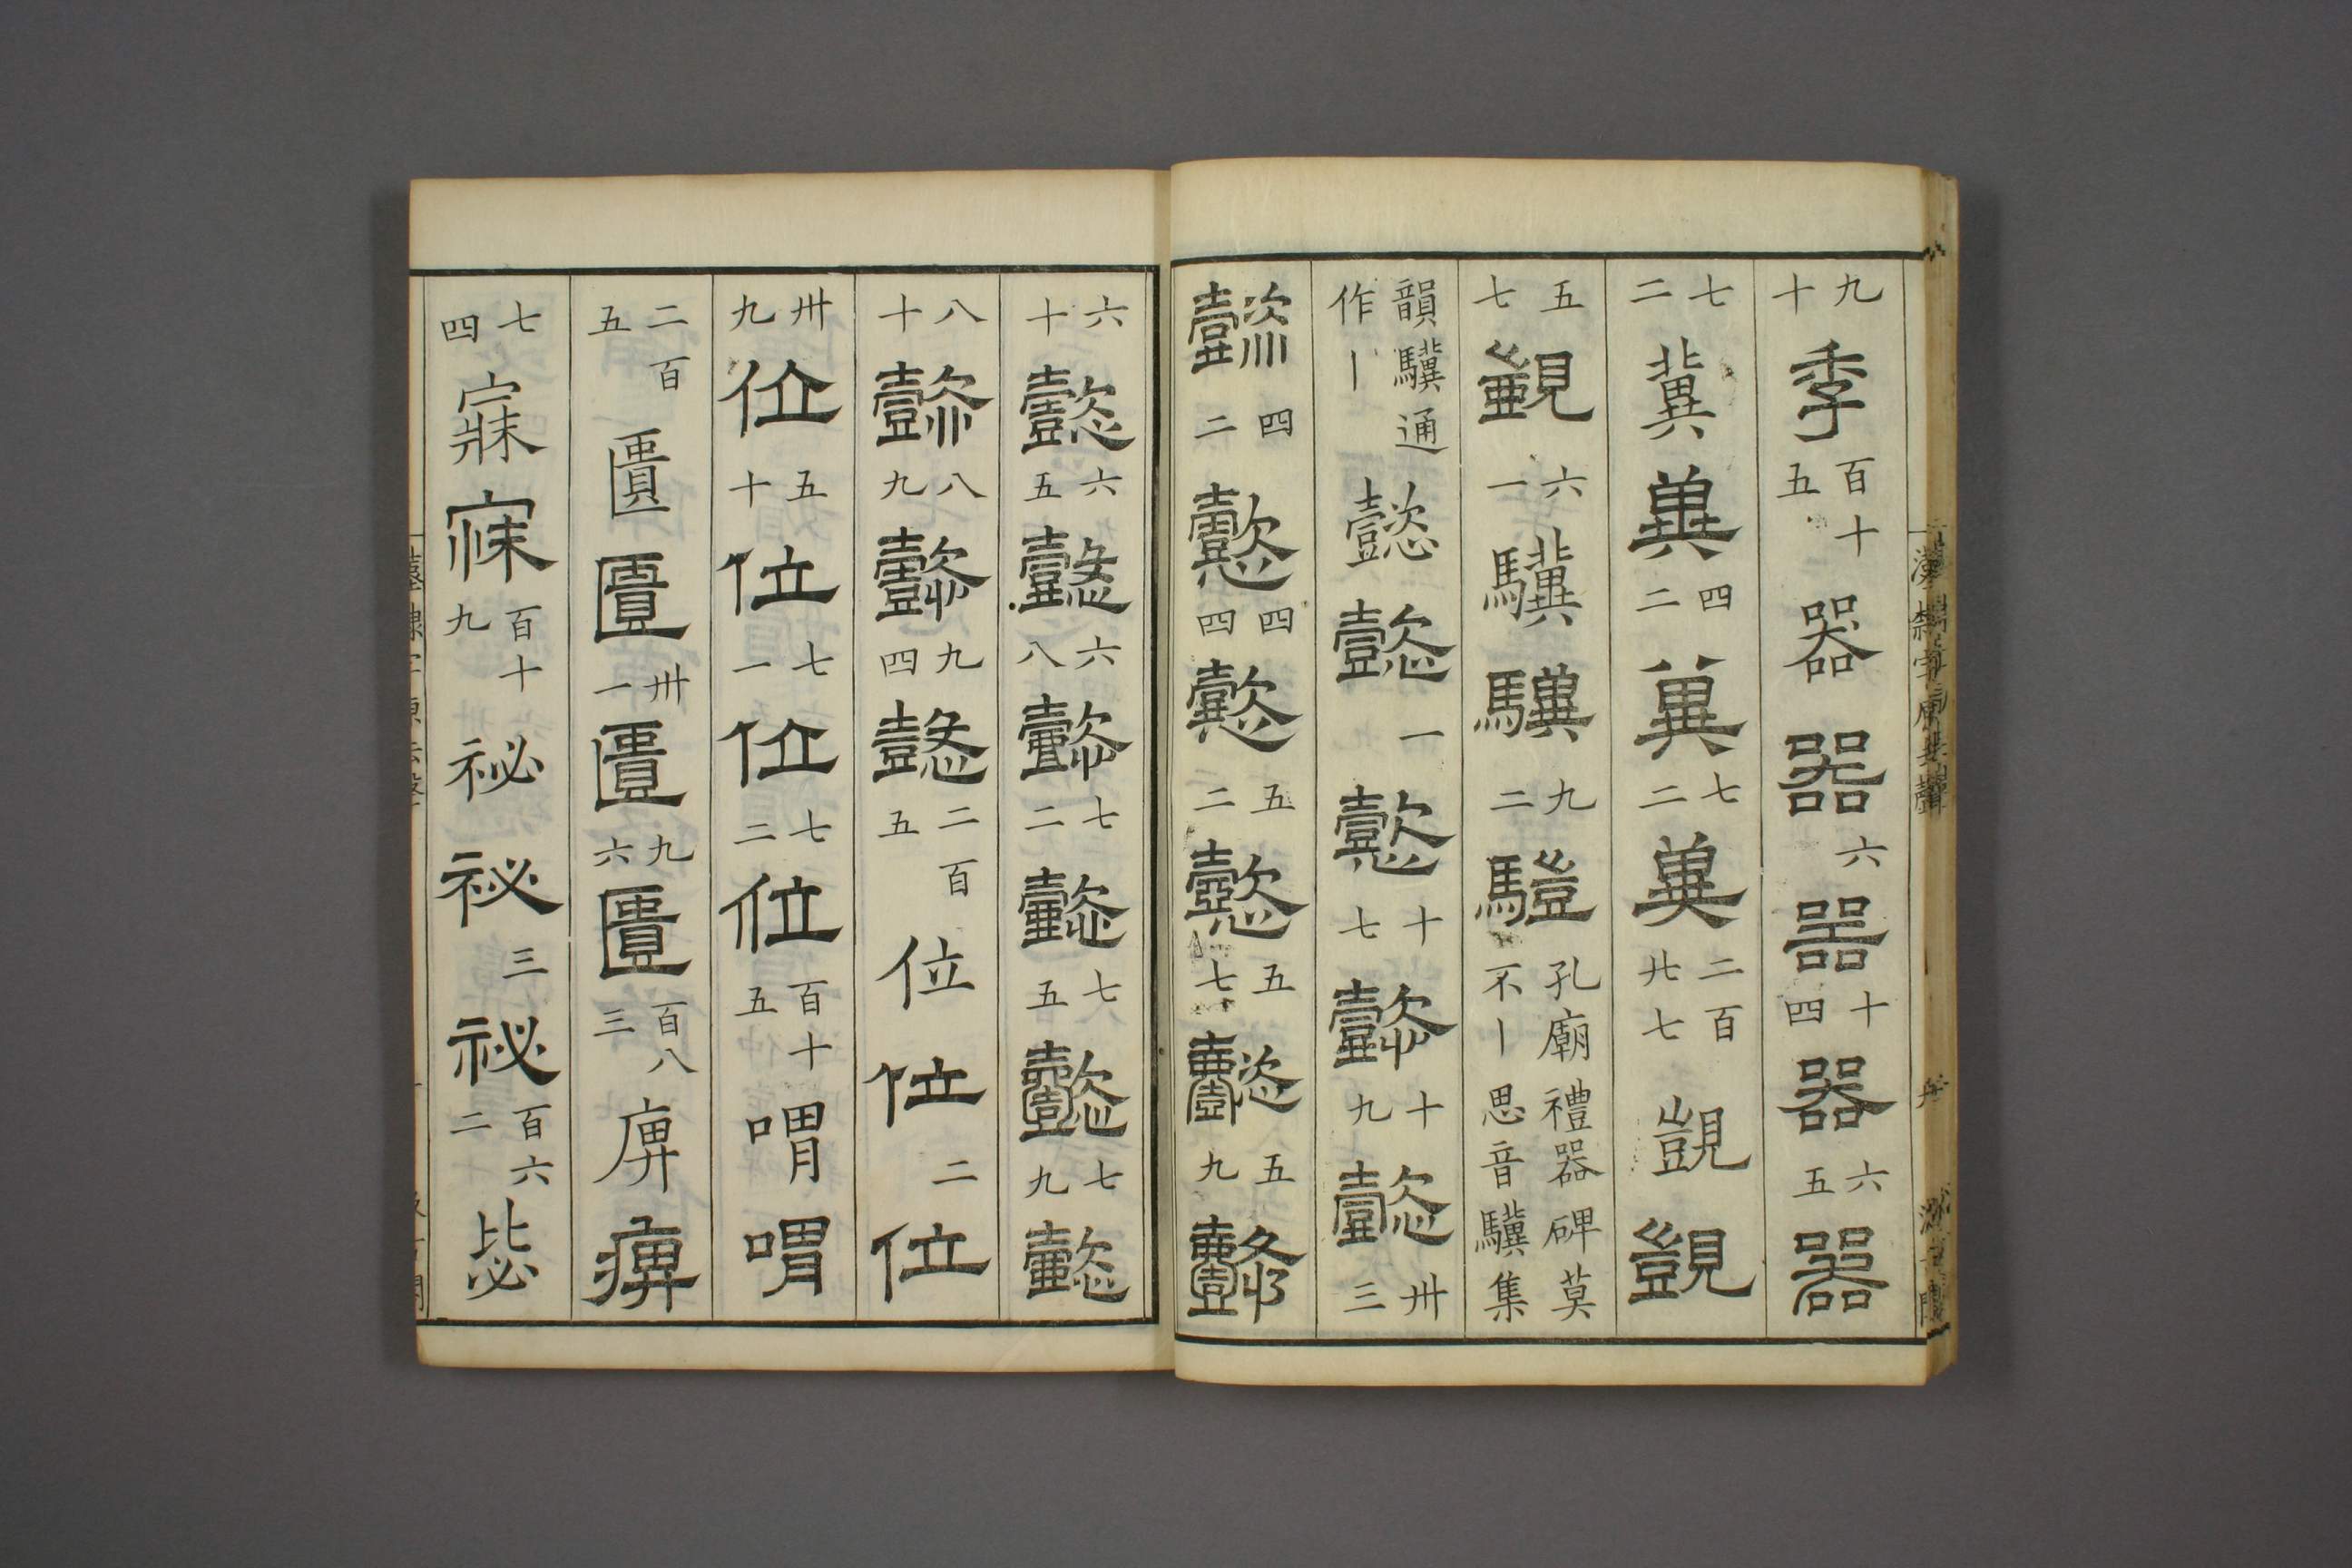 九十季百十五器器六器十四器六五器
七二冀冀四二冀七二冀二百廿七覬覬
五七覬六一驥驥九二驥孔廟禮器碑莫不丨思音驥集
韻驥通作丨懿懿一懿十七懿十九懿卅三
懿四二懿四四懿五二懿五七懿五九懿
六十懿六五懿六八懿七二懿七五懿七九懿
八十懿八九懿九四懿二百五位位二位
卅九位五十位七一位七二位百十五喟喟
二百五匱匱卅一匱九六匱百八三痹痹
七四寐寐百十九祕祕三祕百六二毖